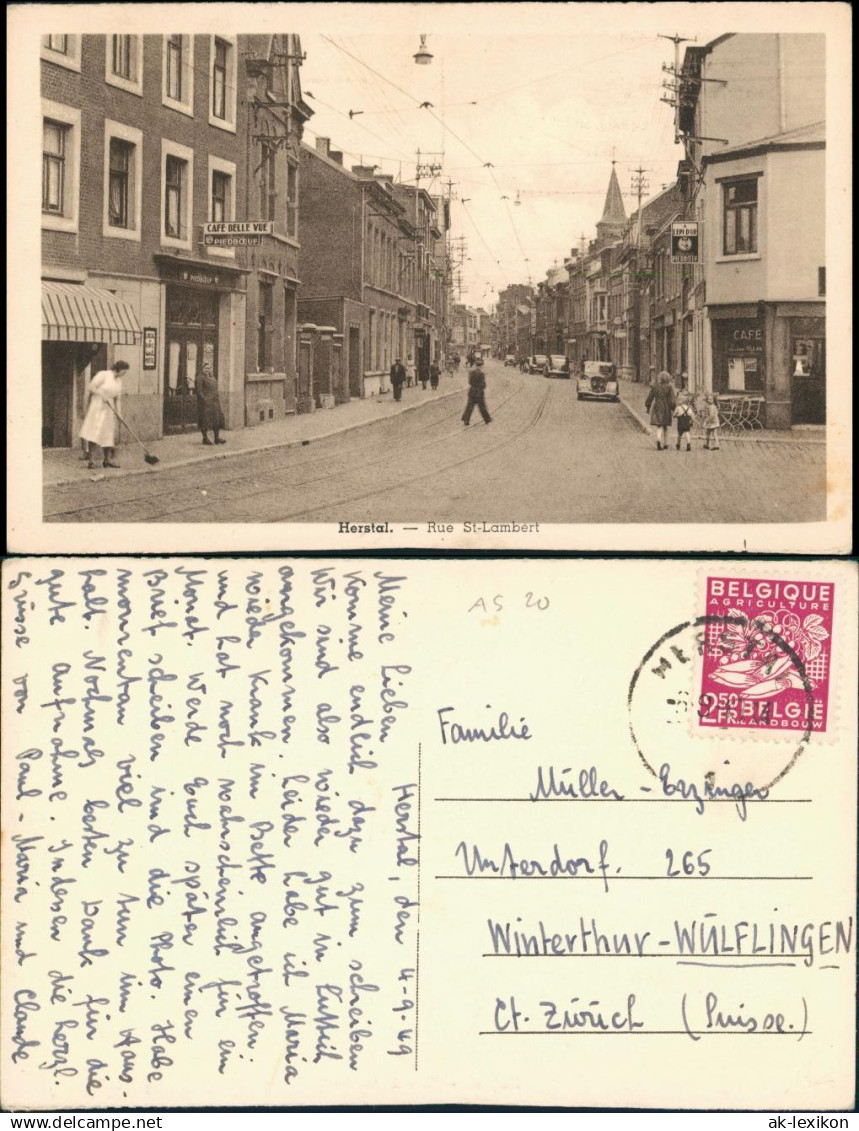 CAFE BELLE VUE
PIEDBŒUF
L'EPI D'OR
PIEDBŒUF
CAFÉ
Herstal. — Rue St-Lambert
AS 20
BELGIQUE
AGRICULTURE
2.50
FR.
BELGIE
LANDBOUW
HERSTAL
Herstal, den 4-9-49
Meine Lieben
Komme endlich dazu zum schreiben
Wir sind also wieder gut in Lüttich
angekommen. Leider habe ich Maria
wieder krank im Bette angetroffen.
und hat noch wahrscheinlich für ein
Monat. Werde Euch später einen
Brief scheiben und die Photo. Habe
momentan viel zu tun im Haus-
halt. Nochmals besten Dank für die
gute aufnahme. Indessen die herzl.
Grüsse von Paul - Maria und Claude
Familie
Müller - Erzinger
Unterdorf. 265
Winterthur - WÜLFLINGEN
Ct. Zürich (Suisse.)
ak-lexikon